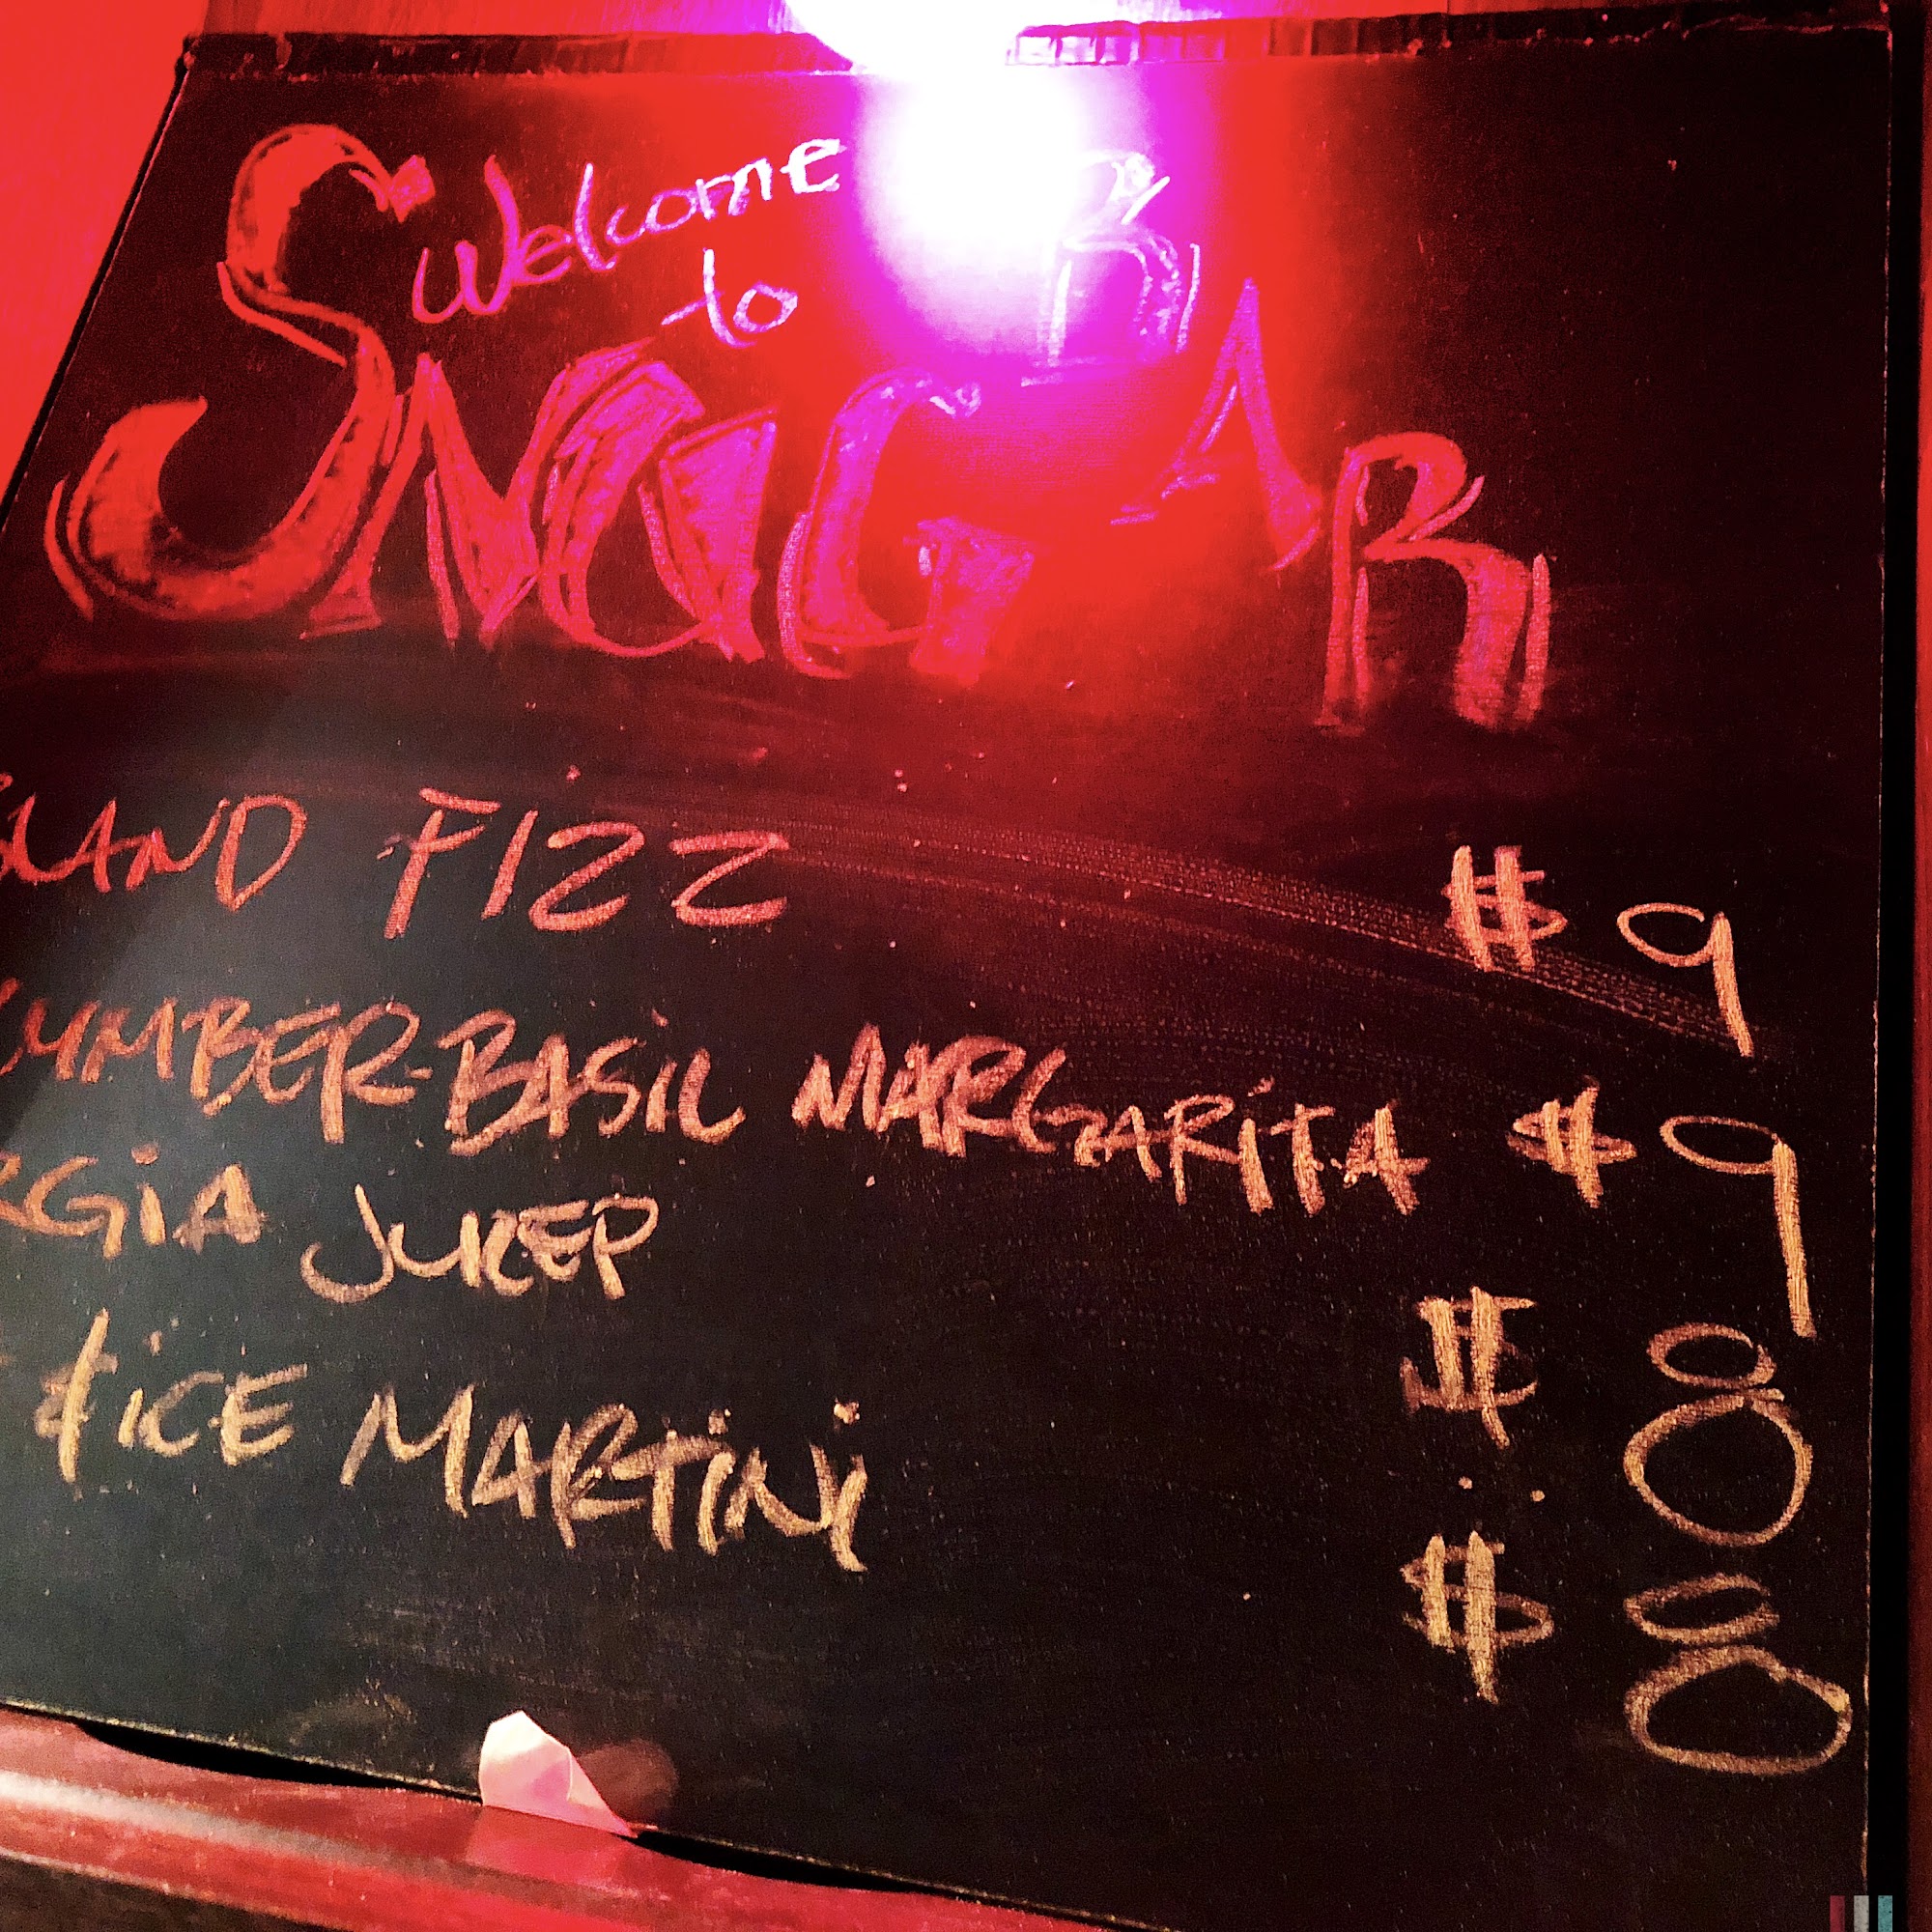 Welcome
to
SNUG BAR
SLAND FIZZ $9
CUMBER-BASIL MARGARITA $9
RGIA JULEP $8
& ICE MARTINI $8